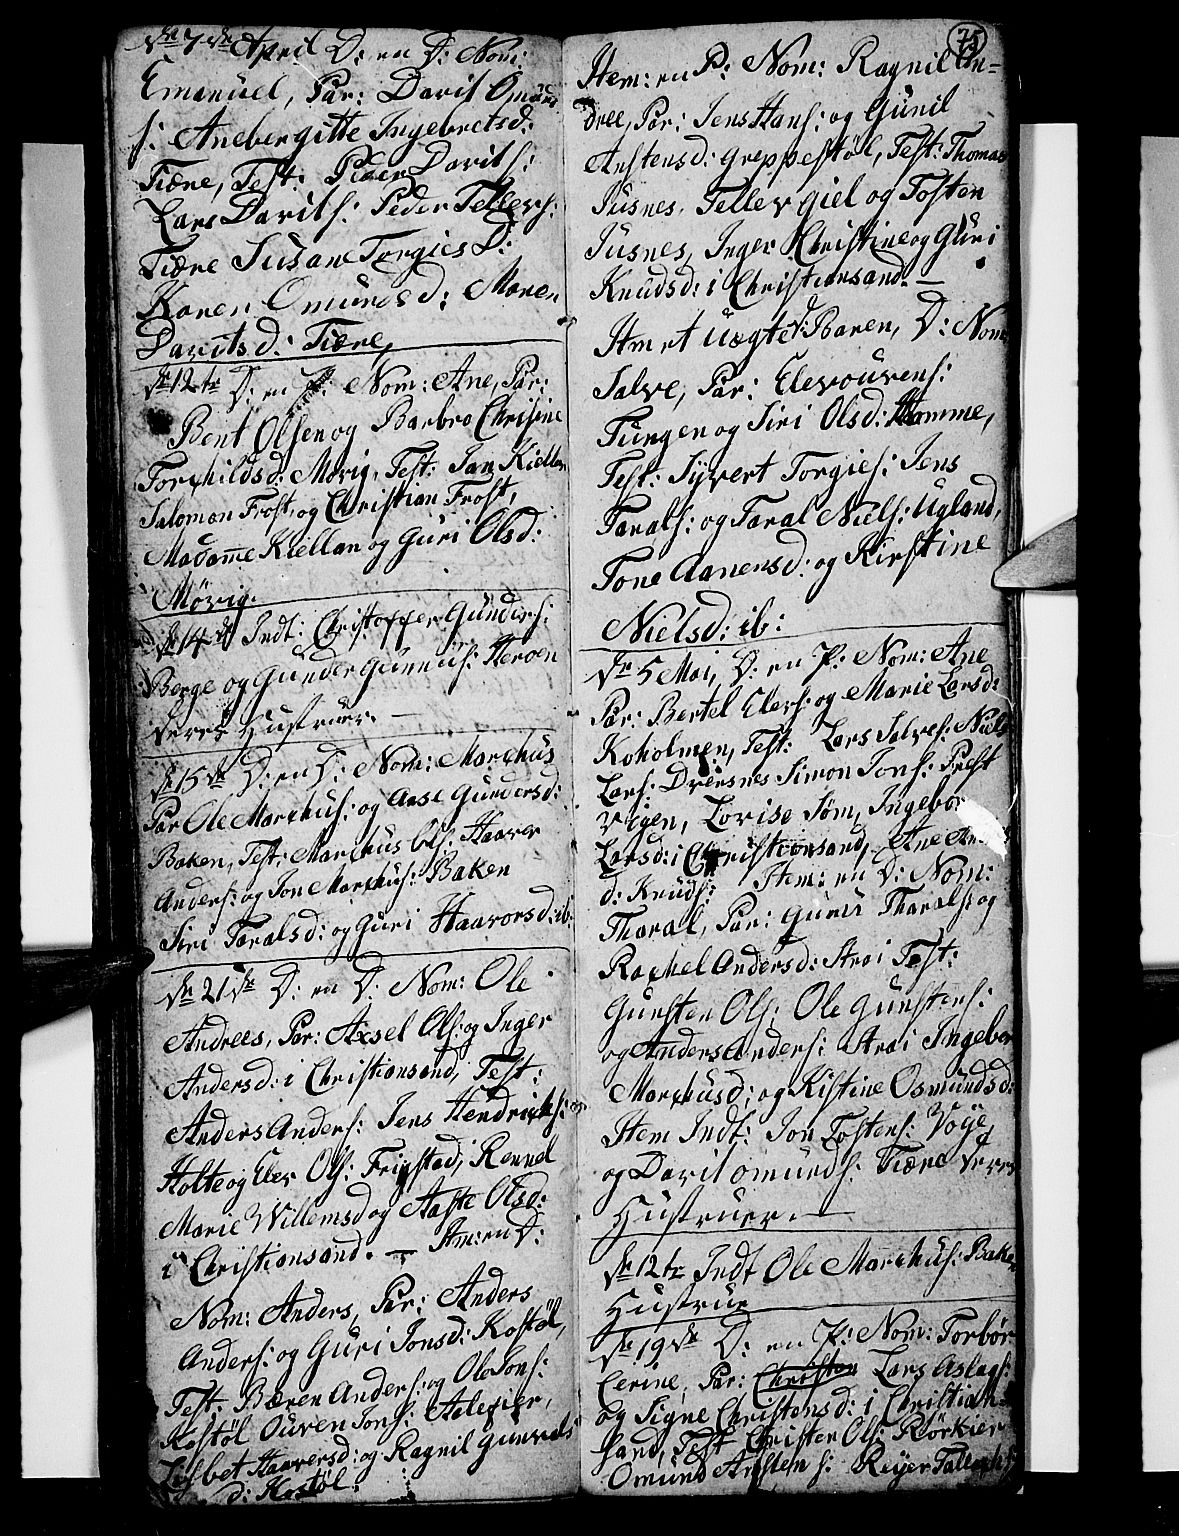 dn 7de April D: en D: Nom:
Emanuel, Par: Davit Omunds
s: Anebergitte Ingebretsd:
Tiære, Test: Peder Davits:
Lars Davits: Peder Tellevs:
Tiære Susane Torgies D:
Karen Omunds d: Maren
Davitsd: Tiære,
dn 12te D: en P: Nom: Ane, Par:
Bent Olsen og Barbro Chrisine
Torkildsd: Mørig, Test: Jan Kiellan
Salomon Frost, og Christian Frost,
Madamme Kiellan og Guri Olsd:
Møvig.
dn 14de Indt: Christoffer Gunders:
Berge og Gunder Gunnufs: Heroen
derres Hustruer. —
dn 15de D: en D: Nom: Marchus
Par Ole Marchus: og Aase Gundersd:
Baken, Test: Marchus Ols: Haaver
Anders: og Jon Marchus: Baken
Siri Taralsd: og Guri Haavorsd: ib:
dn 21de D: en D: Nom: Ole
Andrees, Par: Axsel Ols: og Inger
Andersd: i Christiansand, Test:
Anders Anders: Jens Hendrichs:
Holte og Elev Ols: Fristad, Rennel
Marie Willemsd og Aaste Olsd:
i Christiansand. — Itm: en D:
Nom: Anders, Par: Anders
Anders: og Guri Jonsd: Kostøl,
Test. Bæren Anders: og Ole Jons:
Kostøl Ouven Jons: Aalefier,
Lisbet Haaversd: og Ragnil Gunvals
d: Kostøl.
75
Item: en P: Nom: Ragnil An-
dree, Par: Jens Hans: og Gunil
Anstensd: Greppestøl, Test: Thomas
Jusnes, Tellev Giel og Tosten
Jusnes, Inger Christine og Guri
Knudsd: i Christiansand. —
Itm et Uægte Baren, D: Nom
Salve, Par: Elevouvens:
Tungen og Siri Olsd: Homme,
Test: Syvert Torgies: Jens
Tarals: og Taral Niels: Ugland,
Tone Aanensd: og Kirstine
Nielsd: ib:
dn 5 Mai, D: en P: Nom: Ane
Par: Bertel Elevs: og Marie Larsd:
Koholmen, Test: Lars Salves: Niels
Lars: Dversnes Simon Jons: Prest
vigen, Lovise Søm, Ingebor
Larsd: i Christiansand, Ane
d: Knuds: Item: en D: Nom:
Tharal, Par: Guner Tharals: og
Rachel Andersd: Strai Test:
Gunsten Ols: Ole Gunstens:
og Anders Anders: Strai Ingebor
Marchusd: og Kistine Osmundsd:
Item Indt: Jon Tostens: Voje,
og Davit omunds: Tiære derres
Hustruer. —
dn 12te Indt Ole Marchus: Baken
Hustrue
dn 19de D: en P: Nom: Torbør
Cerine, Par: Christen Lars Aslags:
og Signe Christensd: i Christian-
sand, Test Christen Ols: Rørkier
Omund Anstens: Reyer Tallachs: